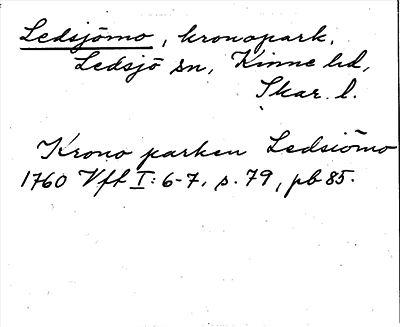 Ledsjömo, kronopark,
Ledsjö sn, Kinne hd,
Skar. l.
Krono parken Ledsiömo
1760 Vfft I: 6-7, s. 79, pb 85.